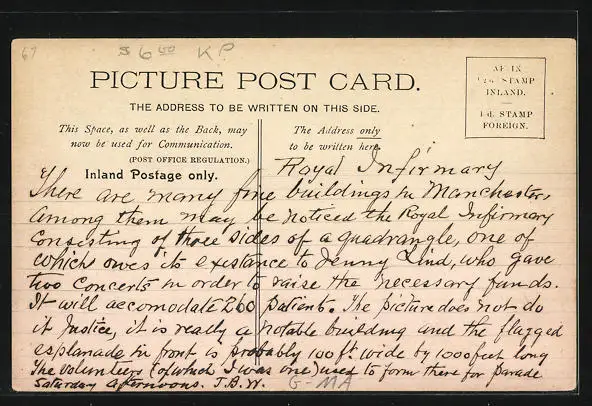 67 $6.00 KP
PICTURE POST CARD.
THE ADDRESS TO BE WRITTEN ON THIS SIDE.
AFFIX
½d. STAMP
INLAND.
1d. STAMP
FOREIGN.
This Space, as well as the Back, may
now be used for Communication.
(POST OFFICE REGULATION.)
Inland Postage only.
The Address only
to be written here.
Royal Infirmary
There are many fine buildings in Manchester,
Among them may be noticed the Royal Infirmary
Consisting of three sides of a quadrangle, one of
which owes its existance to Jenny Lind, who gave
two Concerts in order to raise the necessary funds.
It will accomodate 260 patients. The picture does not do
it Justice, it is really a notable building and the flagged
esplanade in front is probably 100 ft. wide by 1000 feet long
The Volunteers (of which I was one) used to form there for parade
Saturday afternoons. J.B.W.
G-MA